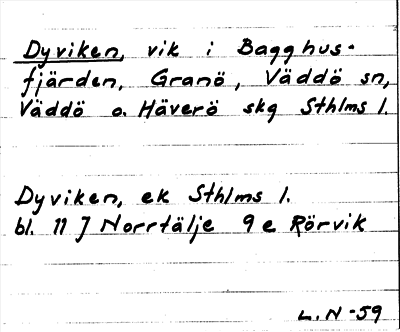 Dyviken, vik i Bagghus-
fjärden, Granö, Väddö sn,
Väddö o. Häverö skg Sthlms l.
Dyviken, ek Sthlms l.
bl. 11 J Norrtälje 9 e Rörvik
L. N -59